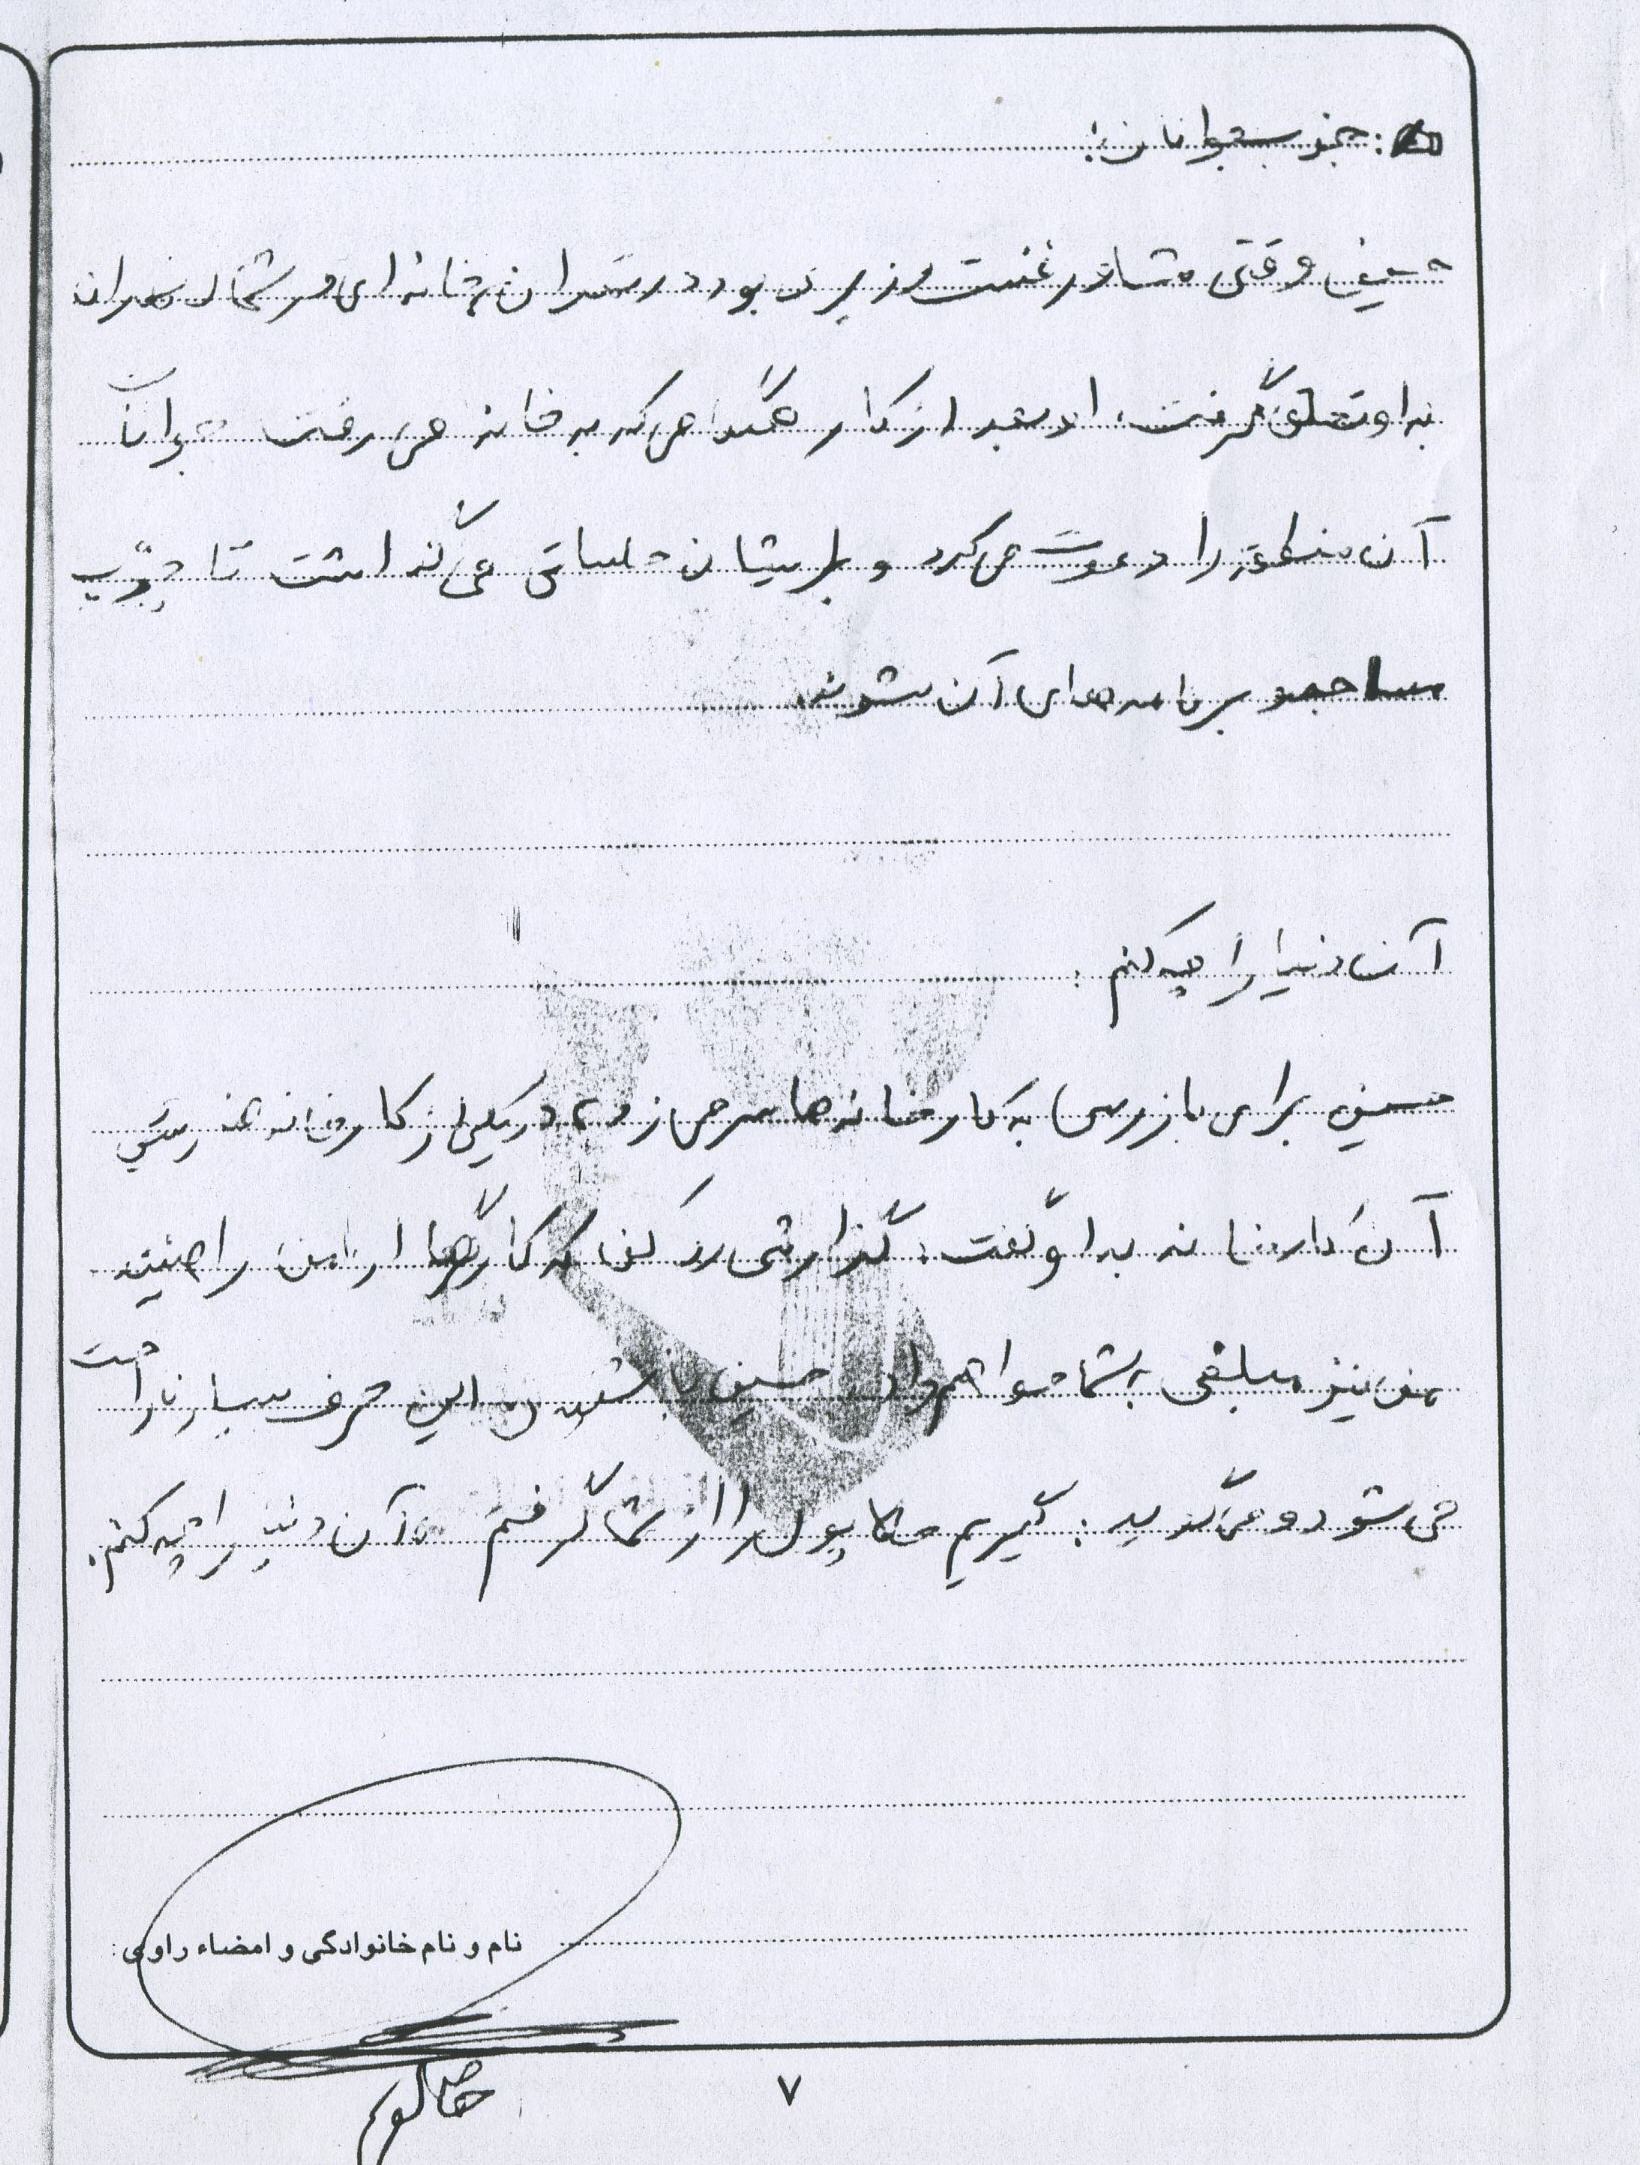 : جذب جوانان:
حسین وقتی مشاور نخست وزیری بود در تهران خانه ای در شمال تهران
به او تعلق گرفت، او بعد از کار هنگامی که به خانه می رفت جوانان
آن منطقه را دعوت می کرد و برایشان جلساتی می گذاشت تا جذب
مساجد و برنامه های آن شوند.
آن دنیا را چه کنم:
حسین برای بازرسی به کارخانه ها سر می زد، در یکی از کارخانه ها رئیس
آن کارخانه به او گفت: گزارشی رد کن که کارگرها از این راضیند
من نیز مبلغی به شما خواهم داد. حسین با شنیدن این حرف بسیار ناراحت
می شود و می گوید: گیریم ما پول را از شما گرفتم، آن دنیا را چه کنم.
نام و نام خانوادگی و امضاء راوی:
۷